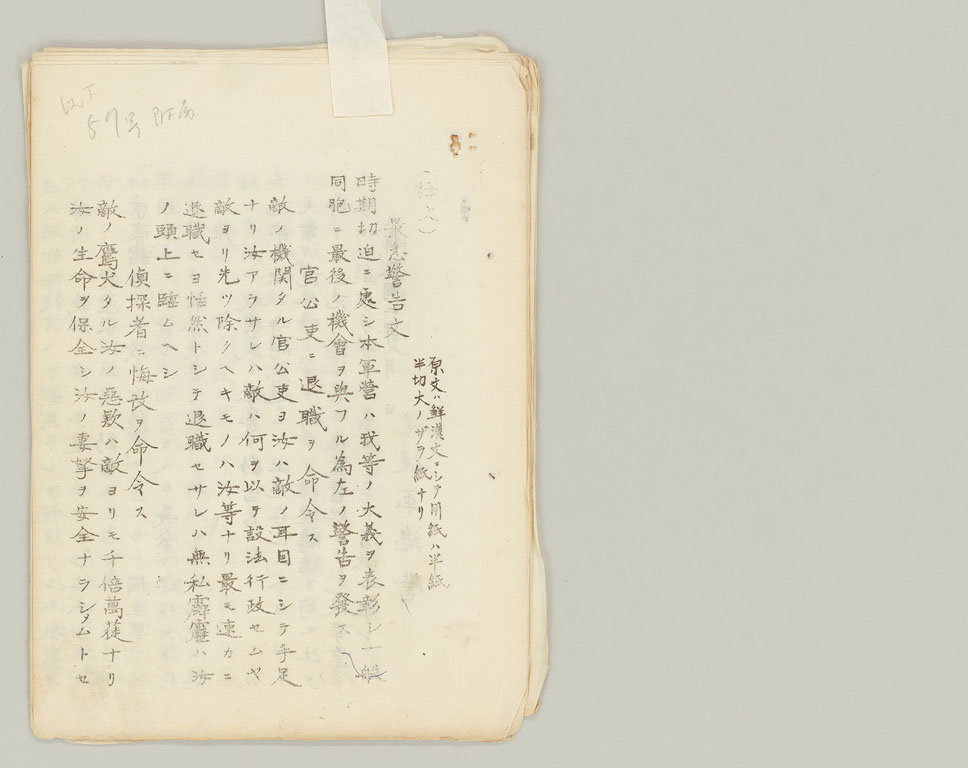 以下
57号附属
(譯文)
最急警告文
原文ハ鮮漢文ニシテ用紙ハ半紙
半切大ノザラ紙ナリ
時期切迫ニ處シ本軍營ハ我等ノ大義ヲ表彰シ一般
同胞ニ最後ノ機會ヲ與フル為左ノ警告ヲ發ス
官公吏ニ退職ヲ命令ス
敵ノ機関タル官公吏ヨ汝ハ敵ノ耳目ニシテ手足
ナリ汝アラサレハ敵ハ何ヲ以テ設法行政セムヤ
敵ヨリ先ツ除クヘキモノハ汝等ナリ最モ速カニ
退職セヨ恬然トシテ退職セサレハ無私霹靂ハ汝
ノ頭上ニ臨ムヘシ
偵探者ニ悔改ヲ命令ス
敵ノ鷹犬タル汝ノ惡歎ハ敵ヨリモ千倍萬徒ナリ
汝ノ生命ヲ保全シ汝ノ妻孥ヲ安全ナラシメムトセ